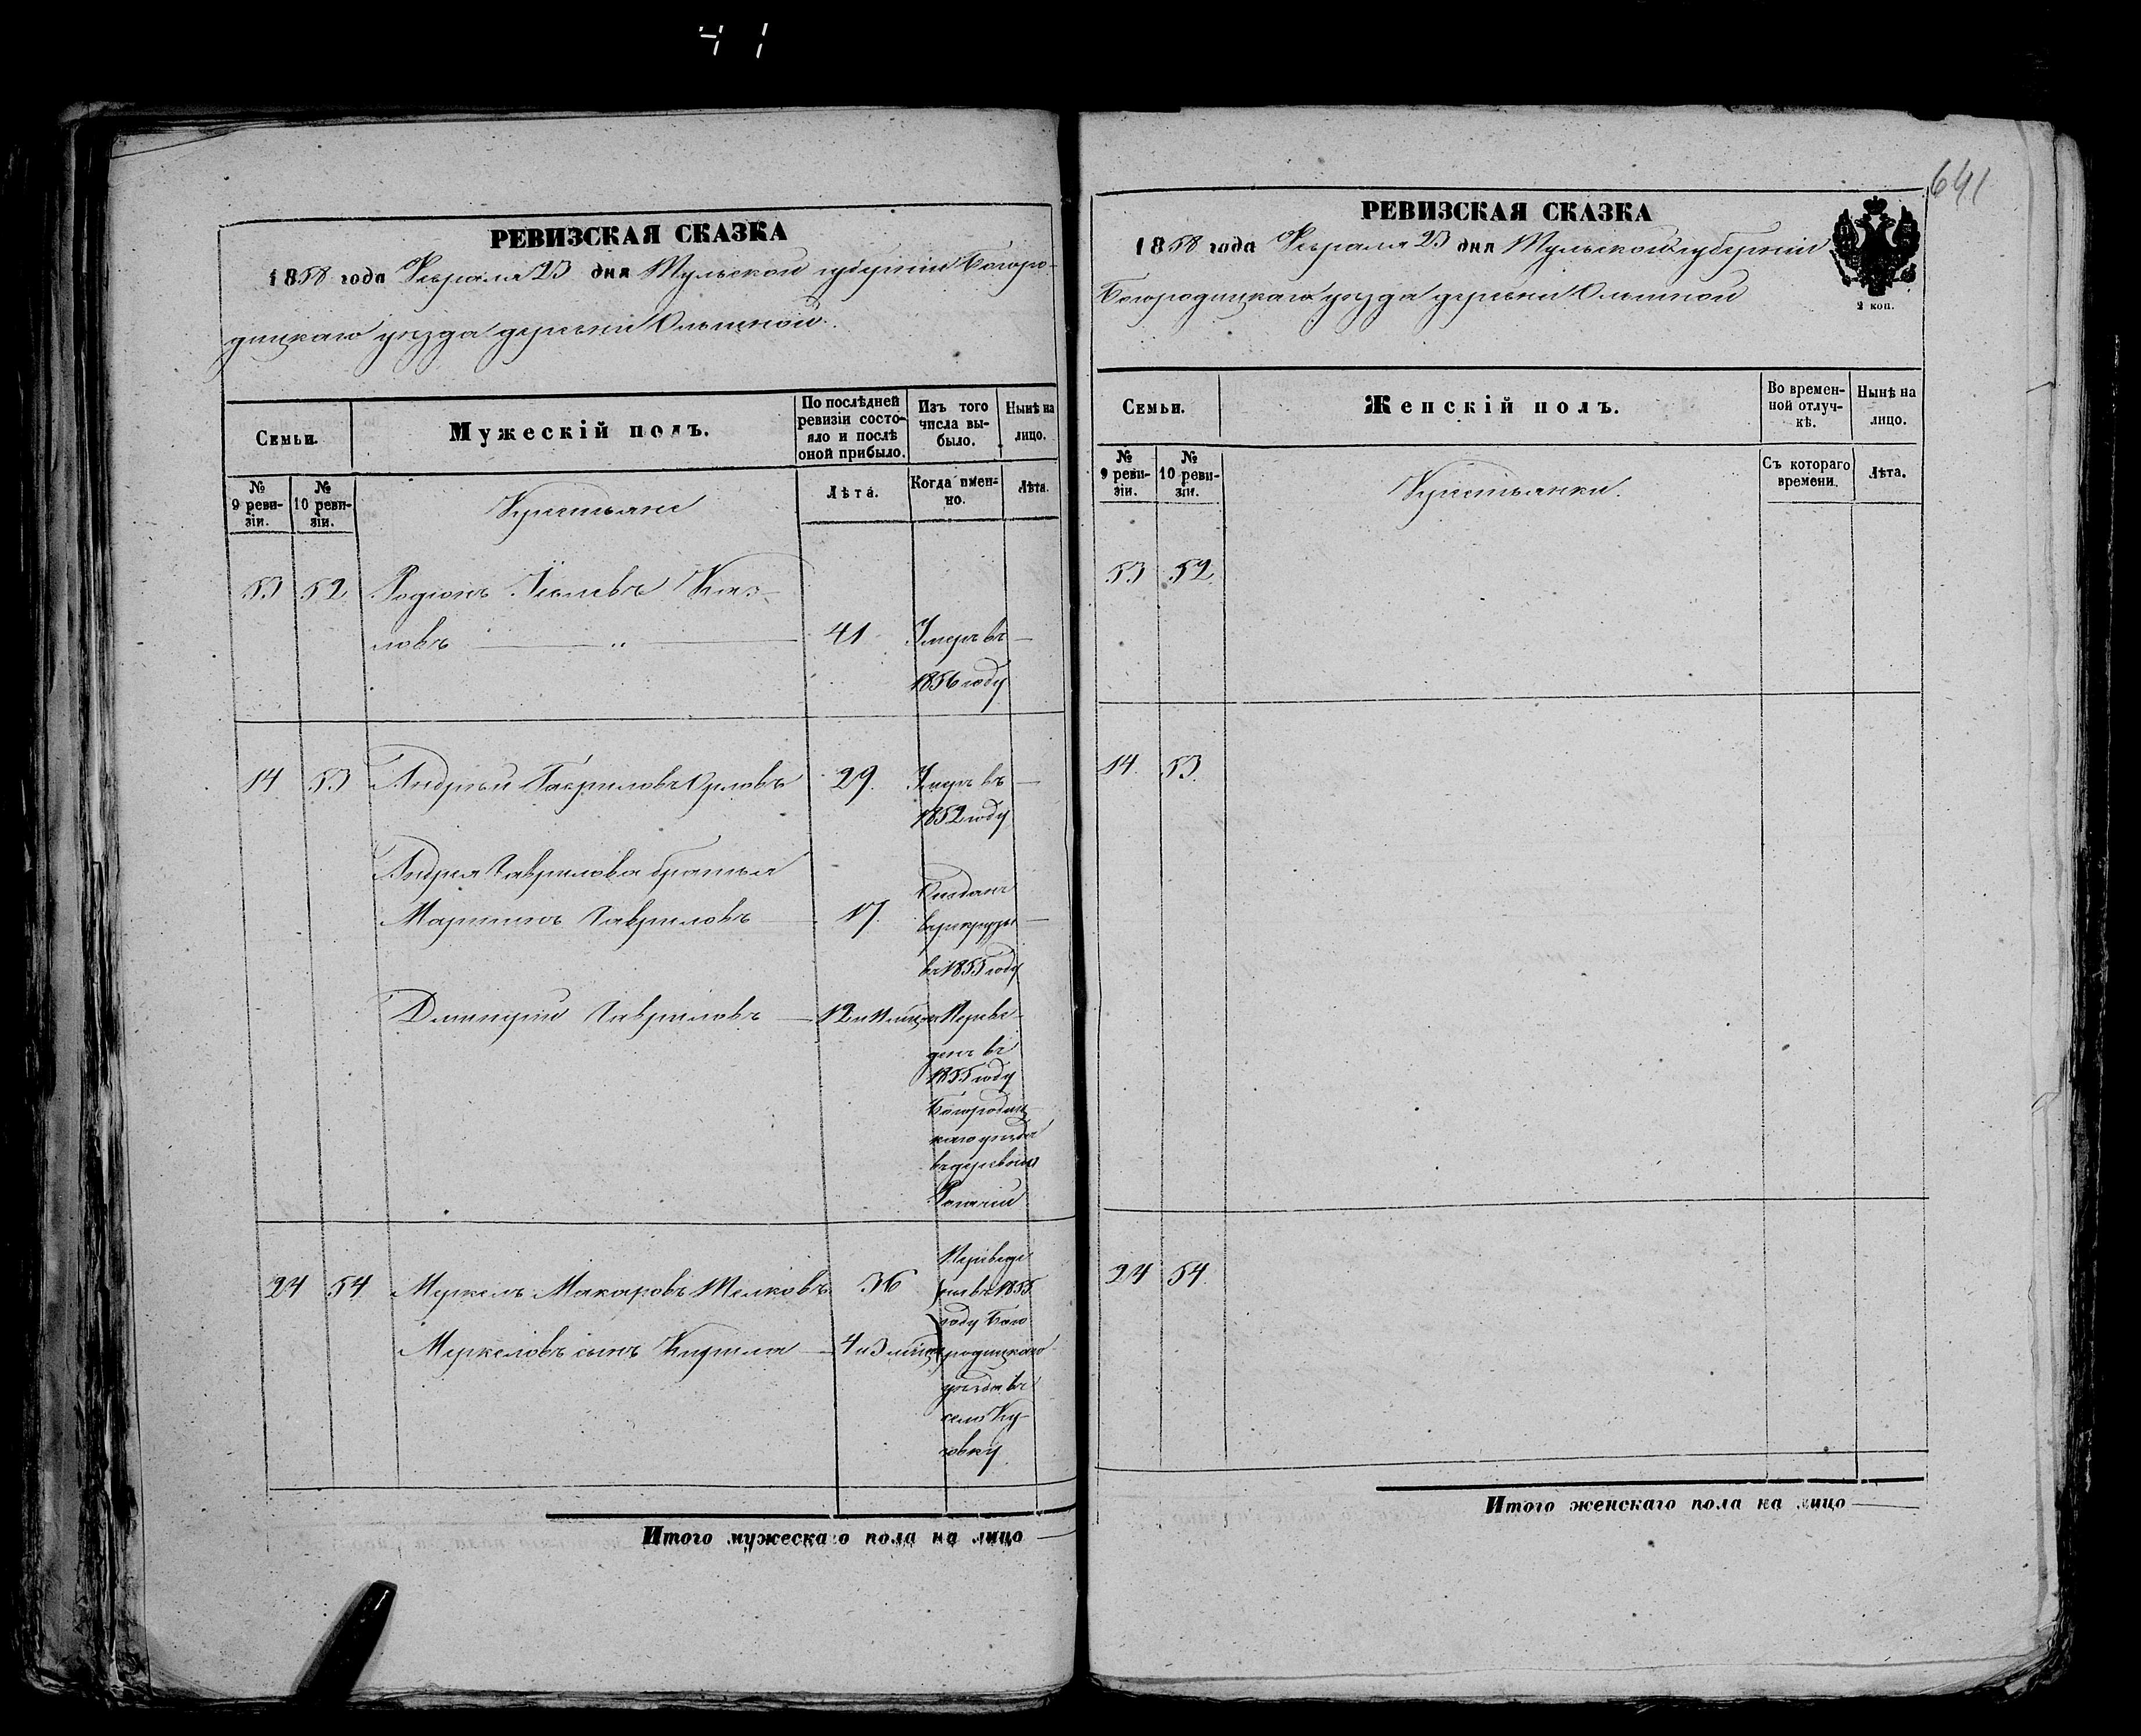 641
РЕВИЗСКАЯ СКАЗКА
1858 года Февраля 23 дня Тульской губерніи Богоро-
дицкаго уѣзда деревни Ольшаной
Семьи.
Мужескій полъ.
По послѣдней ревизіи состояло и послѣ оной прибыло.
Изъ того числа выбыло.
Нынѣ на лицо.
№ 9 ревизіи.
№ 10 ревизіи.
Крестьяне
Лѣта.
Когда именно.
Лѣта.
53 52 Родіонъ Коз-
ловъ 41 Умеръ въ
1856 году
14 53 Андрей Гавриловъ Орловъ 29. Умеръ въ
1852 году
Андрея Гаврилова братья
Отданъ
Мартинъ Гавриловъ 17. въ рекруты
въ 1855 году
Дмитрій Гавриловъ 12 и Переве-
денъ въ
1855 году
Богородиц-
каго уѣзда
въ деревню
Переведе
24 54 Меркелъ Макаровъ Телковъ 36 ны въ 1855
году Бого
Меркеловъ сынъ Кирила 4 и 3 родицкаго
уѣзда въ
село Ку-
зовку
Итого мужескаго пола на лицо —
РЕВИЗСКАЯ СКАЗКА
1858 года Февраля 23 дня Тульской губерніи
Богородицкаго уѣзда деревни Ольшаной
2 коп.
Семьи.
Женскій полъ.
Во временной отлучкѣ.
Нынѣ на лицо.
№ 9 ревизіи.
№ 10 ревизіи.
Крестьянки.
Съ котораго времени.
Лѣта.
53 52
14. 53.
24 54.
Итого женскаго пола на лицо —